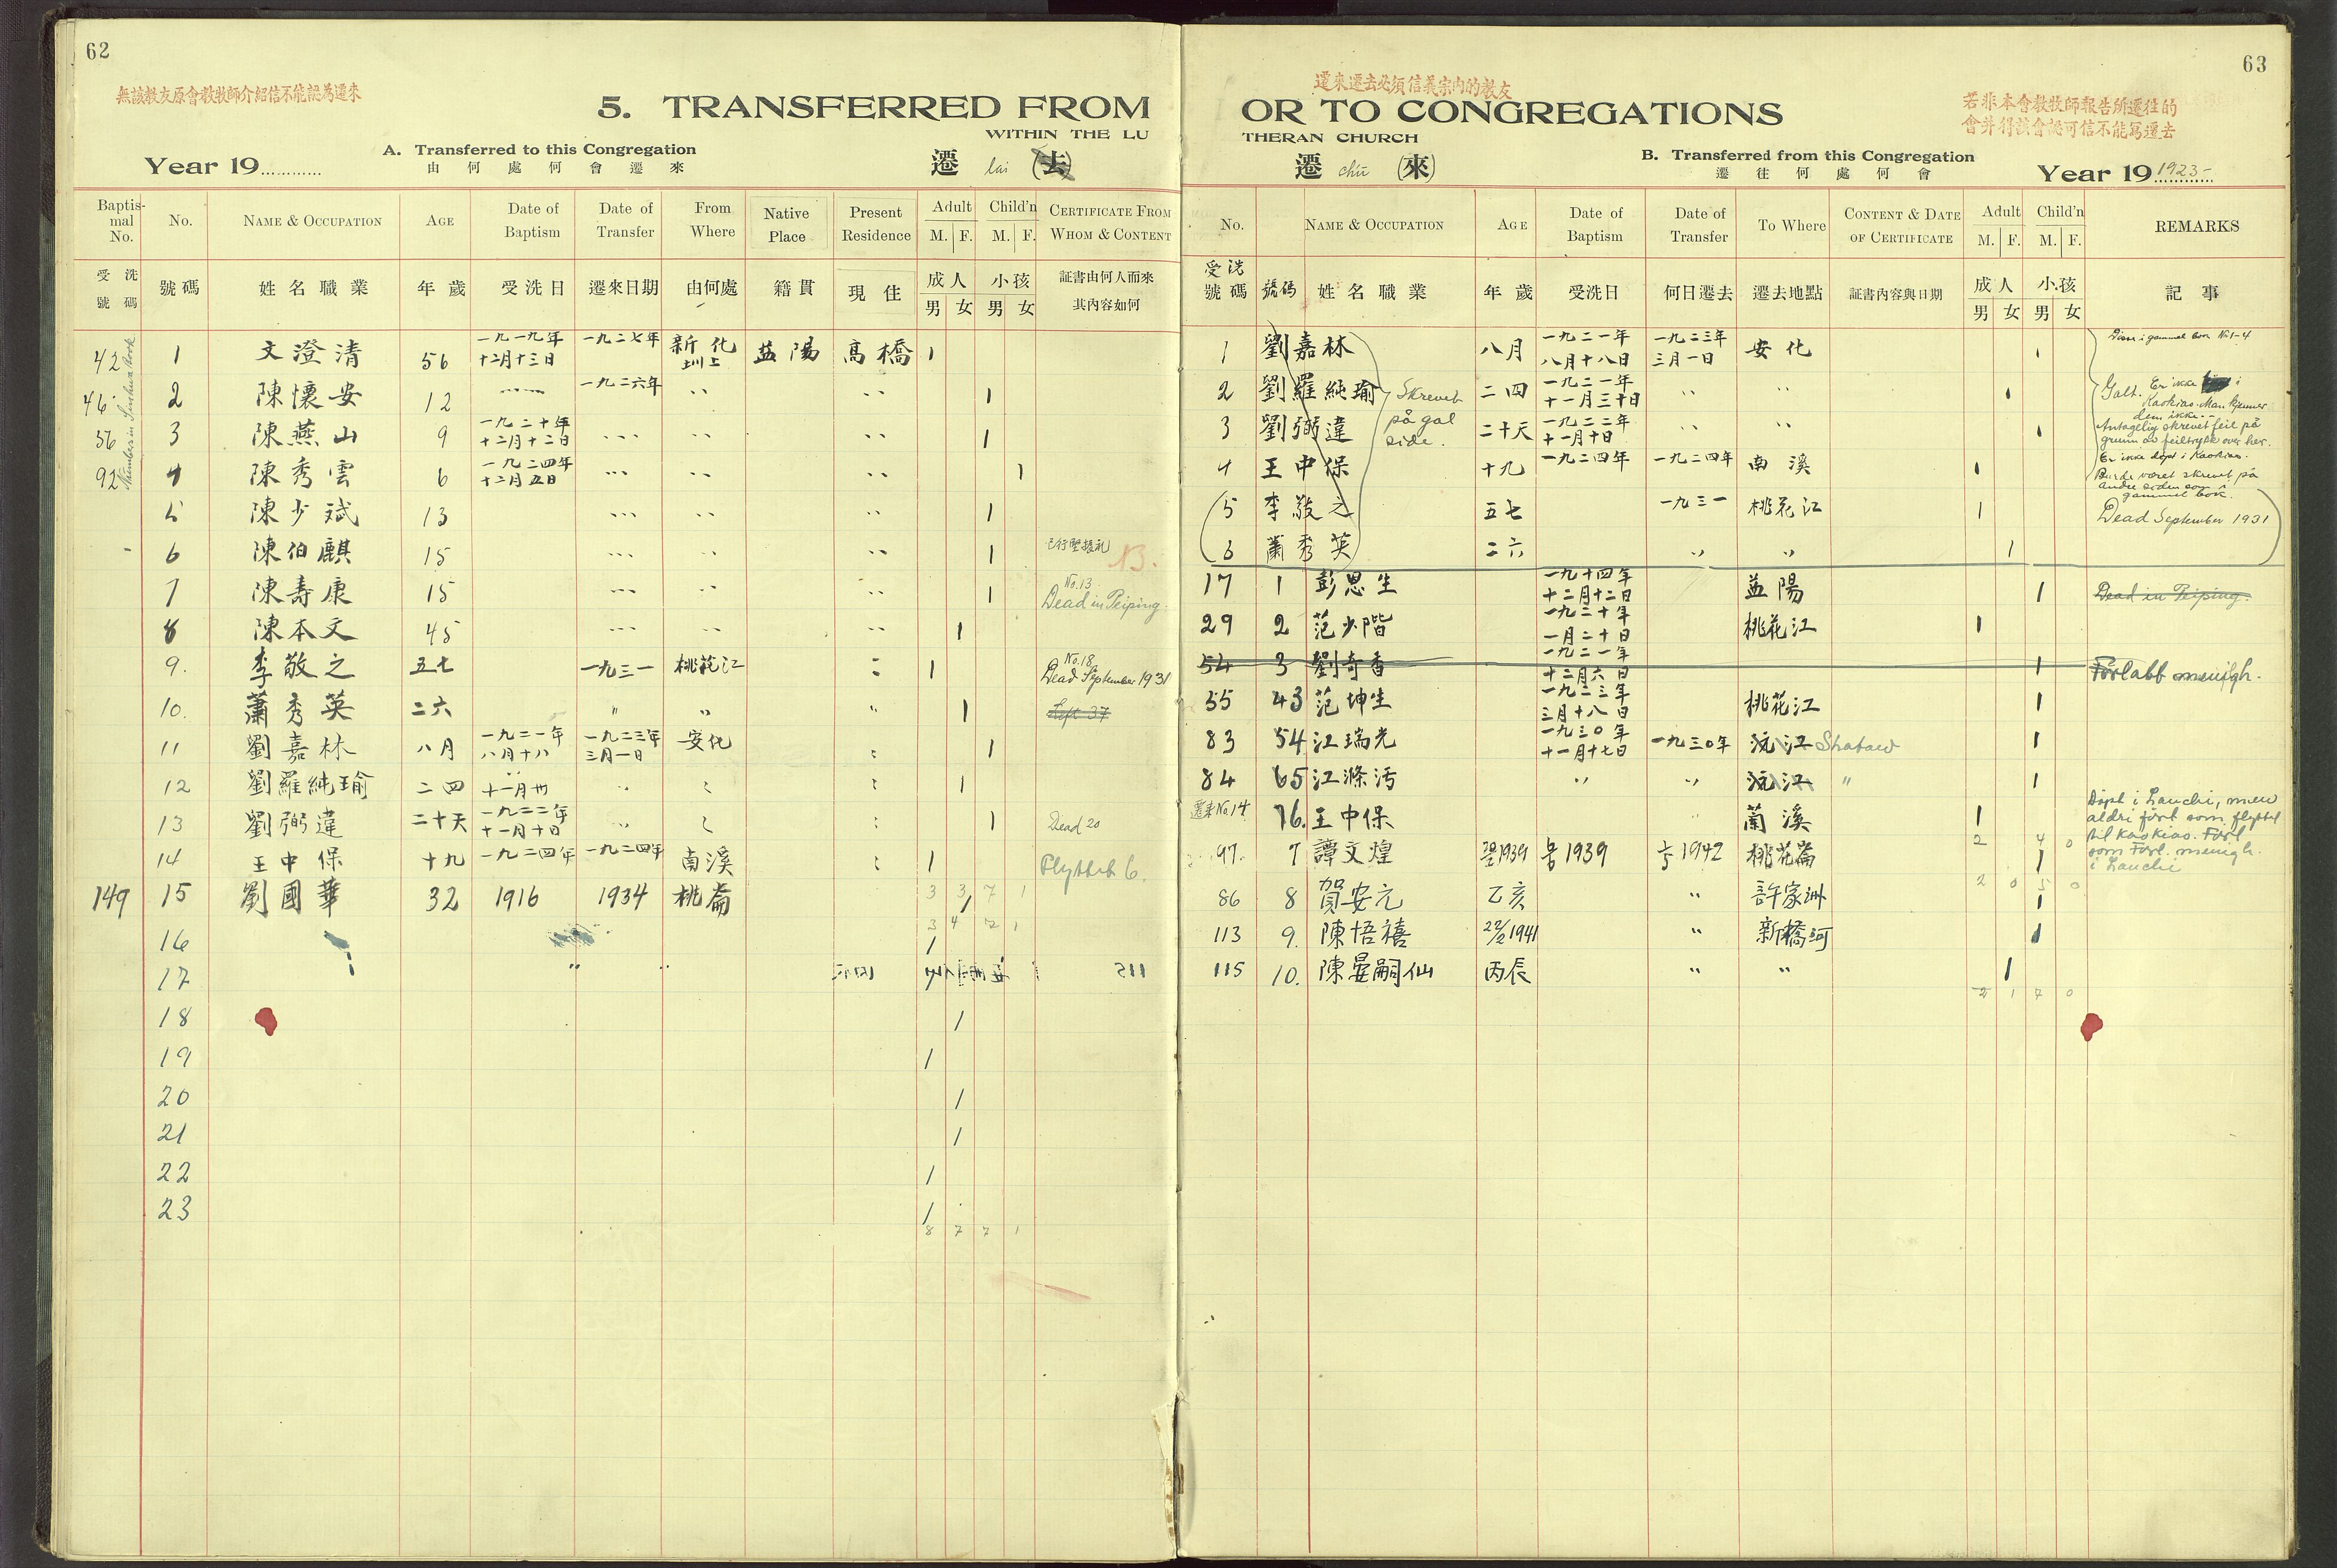 62
無該教友原會教牧師介紹信不能認為遷來
5. TRANSFERRED FROM
WITHIN THE LU
A. Transferred to this Congregation
由何處何會遷來
Year 19............
遷 lai (去)
Baptismal No. No. NAME & OCCUPATION AGE Date of Baptism Date of Transfer From Where Native Place Present Residence Adult M. F. Child'n M. F. CERTIFICATE FROM WHOM & CONTENT
受洗號碼 號碼 姓名職業 年歲 受洗日 遷來日期 由何處 籍貫 現住 成人 男 女 小孩 男 女 証書由何人而來其內容如何
42 1 文澄清 56 一九一九年十二月十三日 一九二七年 新化 益陽 高橋 1
46 2 陳懷安 12 一九二六年 1
56 3 陳燕山 9 一九二十年十二月十二日 1
92 4 陳秀雲 6 一九二四年十二月五日 1
5 陳少斌 13 1
6 陳伯麒 15 1 13.
7 陳壽康 15 1 No. 13 Dead in Peiping.
8 陳本文 45 1
9. 李敬之 五七 一九三一 桃花江 1 No. 18 Dead September 1931
10. 蕭秀英 二六 " " " 1
11 劉嘉林 八月 一九二一年八月十八 一九二三年三月一日 安化 1
12 劉羅純瑜 二四 十一月卅 1
13 劉弼違 二十天 一九二二年十一月十日 1 Dead 20
14 王中保 十九 一九二四年 一九二四年 南溪 1 Flyttet 6.
149 15 劉國華 32 1916 1934 桃崙 1
3 3 7 1
3 4 7 1
16 1
17
18 1
19 1
20 1
21 1
22 1
23 1
8 7 7 1
63
遷來遷去必須信義宗內的教友
OR TO CONGREGATIONS
THERAN CHURCH
若非本會教牧師報告所遷往的
會并得該會認可信不能寫遷去
B. Transferred from this Congregation
遷往何處何會
遷 chü (來)
Year 19 1923-
No. NAME & OCCUPATION AGE Date of Baptism Date of Transfer To Where CONTENT & DATE OF CERTIFICATE Adult M. F. Child'n M. F. REMARKS
受洗號碼 號碼 姓名職業 年歲 受洗日 何日遷去 遷去地點 証書內容與日期 成人 男 女 小孩 男 女 記事
1 劉嘉林 八月 一九二一年八月十八日 一九二三年三月一日 安化 1
2 劉羅純瑜 二四 一九二一年十一月三十日 1
3 劉弼違 二十天 一九二二年十一月十日 1
4 王中保 十九 一九二四年 一九二四年 南溪 1
Skrevet på gal side.
Disse i gammel bok No 1-4
Galt. Er ikke i Kaokiao. Man kjenner dem ikke.
Antagelig skrevet feil på grunn av feiltrykk over her.
Er ikke døpt i Kaokiao.
Burde været skrevet på andre siden som gammel bok.
5 李敬之 五七 一九三一 桃花江 1 Dead September 1931
6 蕭秀英 二六 " " 1
17 1 彭恩生 一九十四年十二月十二日 益陽 1 Dead in Peiping.
29 2 范少階 一九二十年一月二十日 桃花江 1
54 3 劉奇香 一九二一年十二月六日 1 Forlatt menigh.
55 43 范坤生 一九二三年三月十八日 桃花江 1
83 54 江瑞光 一九三〇年十一月十七日 一九三〇年 沅江 Shatau 1
84 65 江滌污 " " 沅江 " 1
遷來 No 14 76. 王中保 蘭溪 1
Døpt i Lanchi, men aldri ført som flyttet til Kaokiao. Ført som Forl. menigh. i Lanchi
2 4 0
97. 7 譚文煌 1939 1939 1942 桃花崙 1
2 0 5 0
86 8 賀安元 乙亥 " 許家洲 1
113 9. 陳悟禧 22/2 1941 " 新橋河 1
115 10. 陳晏嗣仙 丙辰 " " 1
2 1 7 0